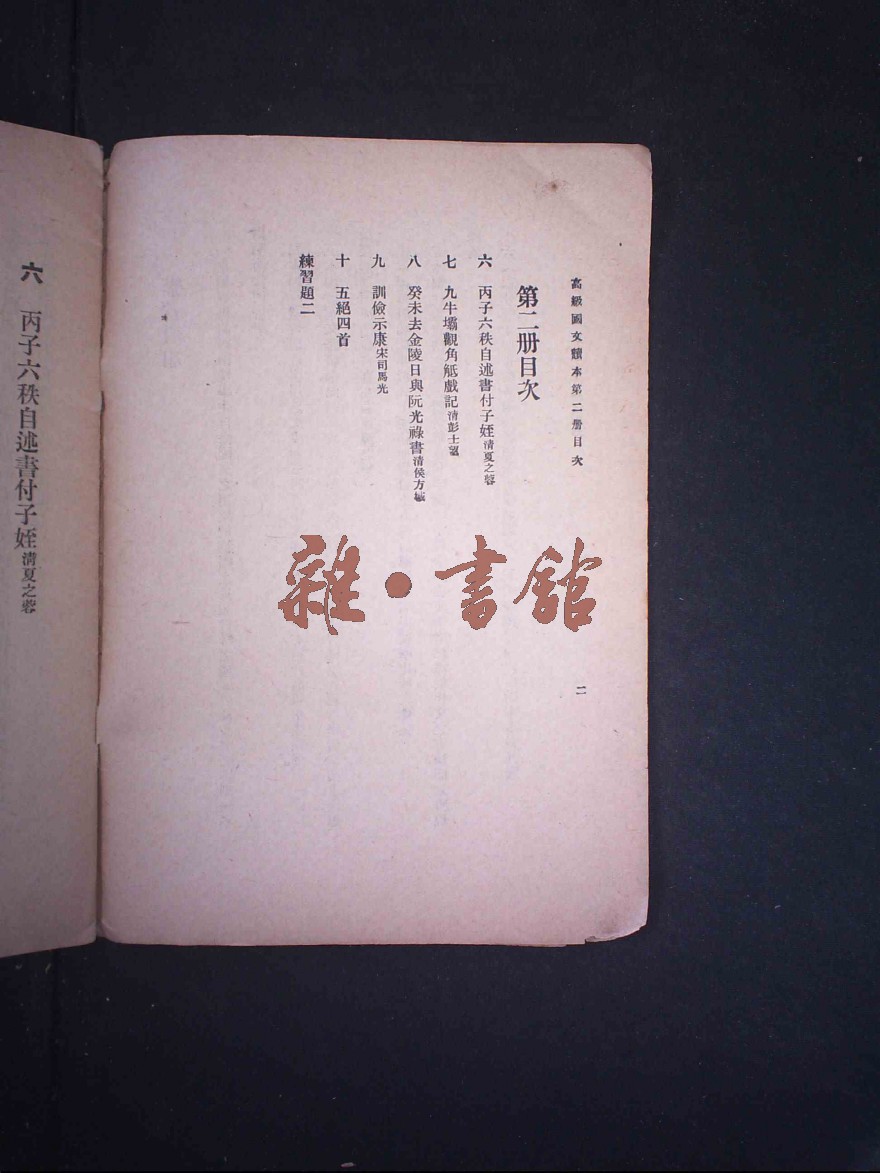 高級國文讀本第二册目次
二
第二册目次
六 丙子六秩自述書付子姪清夏之蓉
七 九牛壩觀角觝戲記清彭士望
八 癸未去金陵日與阮光祿書清侯方域
九 訓儉示康宋司馬光
十 五絕四首
練習題二
雜·書館
六 丙子六秩自述書付子姪清夏之蓉